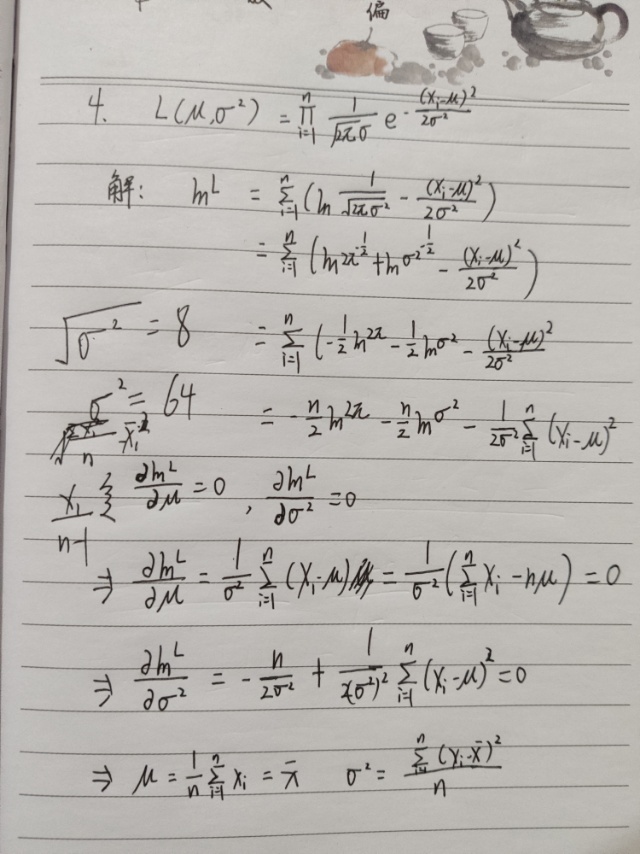 偏
4. L(μ,σ²) = ∏_{i=1}^{n} 1/(√(2π)σ) e^{-(xᵢ-μ)²/(2σ²)}
解: lnL = ∑_{i=1}^{n} (ln 1/√(2πσ²) - (xᵢ-μ)²/(2σ²))
= ∑_{i=1}^{n} (ln2π^{-1/2} + lnσ²^{-1/2} - (xᵢ-μ)²/(2σ²))
√(σ²) = 8 = ∑_{i=1}^{n} (-1/2 ln2π - 1/2 lnσ² - (xᵢ-μ)²/(2σ²)
σ² = 64 = -n/2 ln2π - n/2 lnσ² - 1/(2σ²) ∑_{i=1}^{n} (xᵢ-μ)²
x₁/(n-1) { ∂lnL/∂μ = 0 , ∂lnL/∂σ² = 0
⇒ ∂lnL/∂μ = 1/σ² ∑_{i=1}^{n} (xᵢ-μ) = 1/σ² (∑_{i=1}^{n} xᵢ - nμ) = 0
⇒ ∂lnL/∂σ² = -n/(2σ²) + 1/(2(σ²)²) ∑_{i=1}^{n} (xᵢ-μ)² = 0
⇒ μ = 1/n ∑_{i=1}^{n} xᵢ = x̄ σ² = ∑_{i=1}^{n} (xᵢ-x̄)²/n